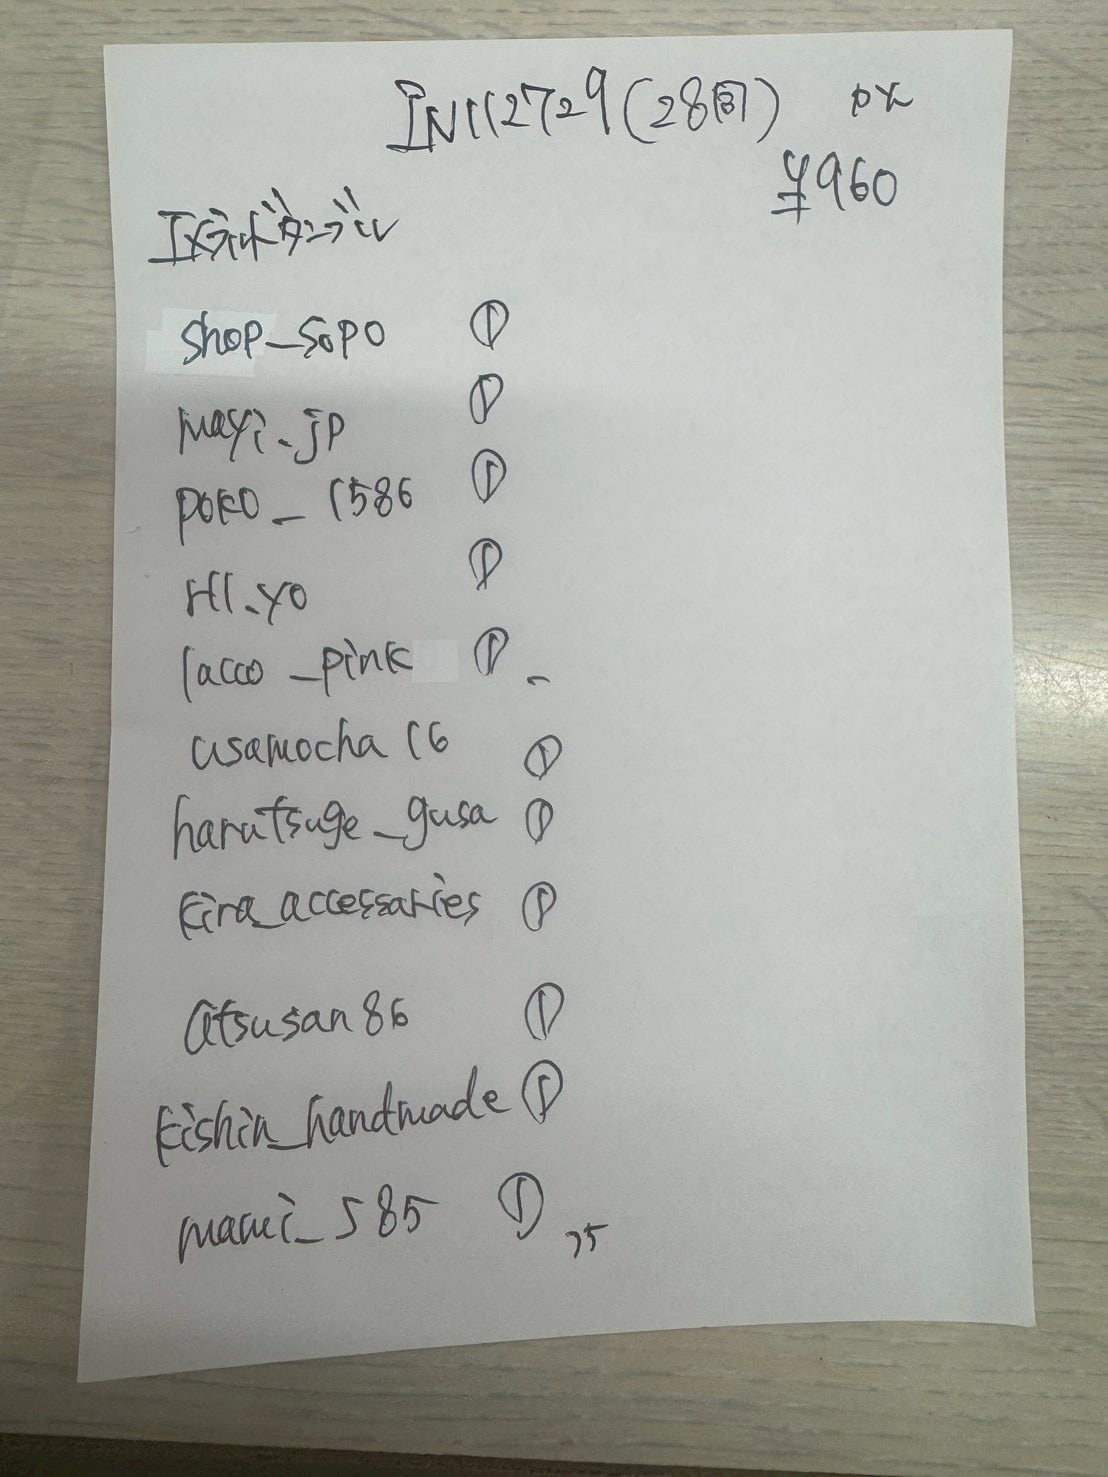 IN112729(28南) px
¥960
shop_sopo ①
mayi_jp ①
poko_1586 ①
HI.yo ①
lacco_pink ①
usamocha16 ①
harutsuge_gusa ①
kira_accessaries ①
atsusan86 ①
kishin_handmade ①
mami_585 ①